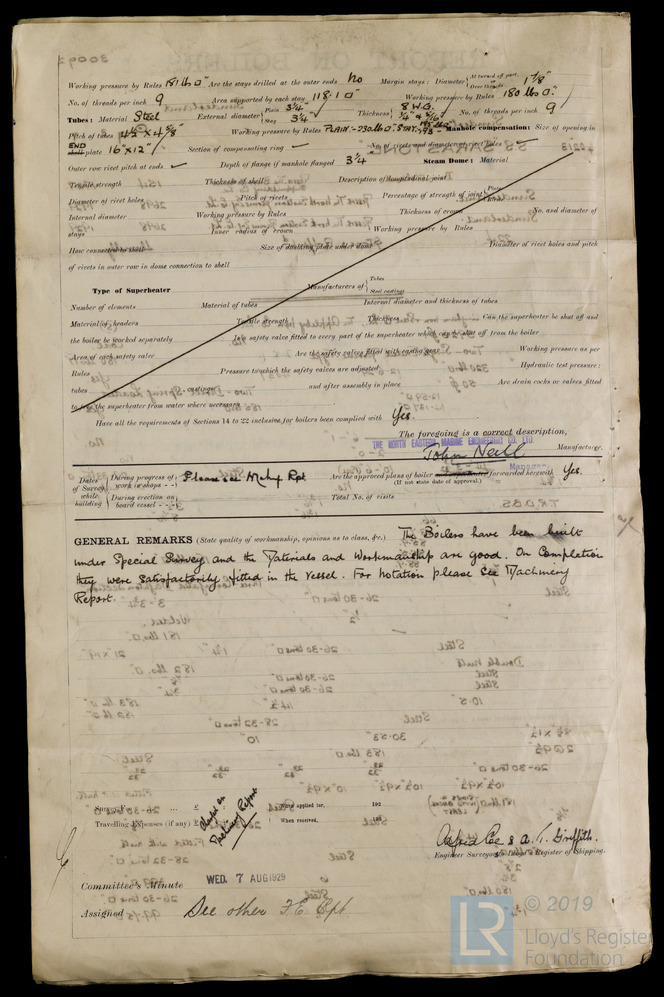 Working pressure by Rules 181 lb □" Are the stays drilled at the outer ends No Margin stays: Diameter { At turned off part, or Over threads 1 7/8"
No. of threads per inch 9 Area supported by each stay 118.1 □" Working pressure by Rules 180 lb □"
Tubes: Material Steel External diameter { Plain 3¼" Stay 3¼" Thickness { 8 W.G. ¼" & 5/16" No. of threads per inch 9
Pitch of tubes 4½" x 4 5/8" Working pressure by Rules PLAIN - 230 lb □" STAY. Manhole compensation: Size of opening in
END
shell plate 16" x 12" Section of compensating ring No. of rivets and diameter of rivet holes
Outer row rivet pitch at ends Depth of flange if manhole flanged 3¼" Steam Dome: Material
Tensile strength Thickness of shell Description of longitudinal joint
Diameter of rivet holes Pitch of rivets Percentage of strength of joint { Plate
Internal diameter Working pressure by Rules Thickness of crown No. and diameter of
stays Inner radius of crown Working pressure by Rules
How connected to shell Size of doubling plate under dome Diameter of rivet holes and pitch
of rivets in outer row in dome connection to shell
Type of Superheater Manufacturers of { Tubes Steel castings
Number of elements Material of tubes Internal diameter and thickness of tubes
Material of headers Tensile strength Thickness Can the superheater be shut off and
the boiler be worked separately Is a safety valve fitted to every part of the superheater which can be shut off from the boiler
Area of each safety valve Are the safety valves fitted with easing gear Working pressure as per
Rules Pressure to which the safety valves are adjusted Hydraulic test pressure:
tubes castings and after assembly in place Are drain cocks or valves fitted
to free the superheater from water where necessary
Have all the requirements of Sections 14 to 22 inclusive for boilers been complied with Yes.
The foregoing is a correct description,
THE NORTH EASTERN MARINE ENGINEERING CO. LTD.
John Neill Manufacturer.
Manager
Dates of Survey while building { During progress of work in shops - - Please see Mchy Rpt Are the approved plans of boiler forwarded herewith Yes.
(If not state date of approval.)
During erection on board vessel - - - Total No. of visits
GENERAL REMARKS (State quality of workmanship, opinions as to class, &c.) The Boilers have been built
under Special Survey and the Materials and Workmanship are good. On Completion
they were satisfactorily fitted in the vessel. For notation please see Machinery
Report.
Survey Fee ... £ When applied for, 192
Travelling Expenses (if any) £ When received, 192
Charged on
Preliminary Report
Alfred Lee & A. T. Griffith.
Engineer Surveyor to Lloyd's Register of Shipping.
Committee's Minute WED. 7 AUG 1929
Assigned See other F.E. Rpt
© 2019
LR
Lloyd's Register
Foundation